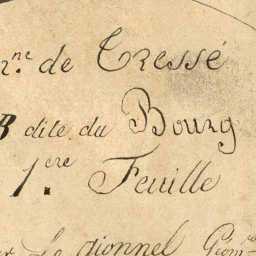 de Tressé
B dite du Bourg
1.ère Feuille
Le gionnel Géom.